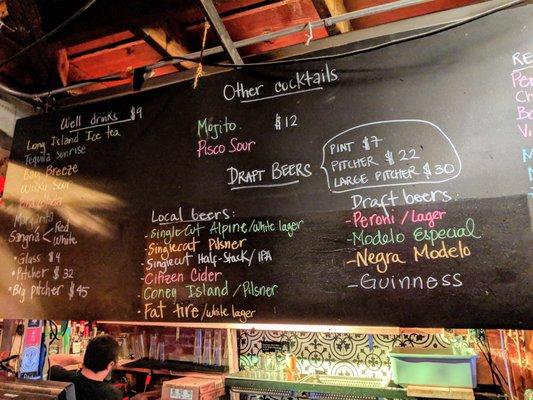 Well drinks $9
Long Island Ice tea
Tequila sunrise
Bay Breeze
Margarita
Sangria Red
White
• Glass $9
• Pitcher $32
• Big pitcher $45
Other cocktails
Mojito $12
Pisco Sour
Draft Beers
Pint $7
Pitcher $22
Large Pitcher $30
Local beers:
- Singlecut Alpine/White lager
- Singlecut Pilsner
- Singlecut Half-Stack/IPA
- Citizen Cider
- Coney Island/Pilsner
- Fat tire/White lager
Draft beers:
- Peroni/Lager
- Modelo Especial
- Negra Modelo
- Guinness